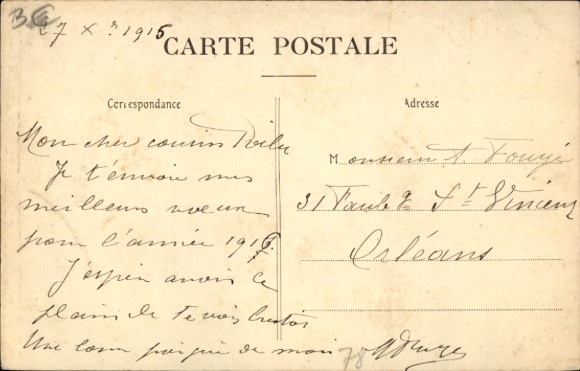 27 Xbr 1915
CARTE POSTALE
Correspondance
Adresse
Mon cher cousin Poilu
Je t'envoie mes
meilleurs voeux
pour l'année 1916.
J'espère avoir le
plaisir de te voir bientôt
Une bonne poignée de main
78
Monsieur A. Fougé
31 Faubg St Vincent
Orléans